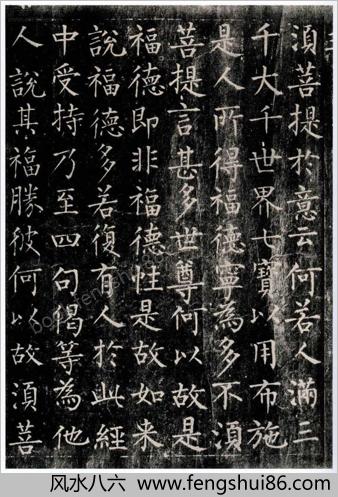 須菩提於意云何若人滿三
千大千世界七寶以用布施
是人所得福德寧為多不須
菩提言甚多世尊何以故是
福德即非福德性是故如来
說福德多若復有人於此經
中受持乃至四句偈等為他
人說其福勝彼何以故須菩
风水八六 www.fengshui86.com